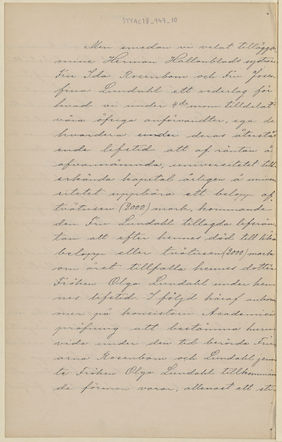 STYAC78_947_10
Men emedan vi velat tillägga
mine Herman Hallonblads systrar
Fru Ida Rosenbom och Fru Jose-
fina Lundahl ett vederlag för
hvad vi under 4de mom tilldelat
våra öfriga anförvandter, ega de
hvardera under deras återstå-
ende lefstid att af räntan å
ofvannämnda, universitetet till-
erkända kapital årligen å univer-
sitetet uppbära ett belopp af
tretusen (3000) mark, kommande
den Fru Lundahl tillagda lifrän-
tan att efter hennes död till lika
belopp eller tretusen (3000) mark
om året tillfalla hennes dotter
Fröken Olga Lundahl under hen-
nes lifstid. I följd häraf ankom-
mer på konsistorii Academici
pröfning att bestämma huru
vida under den tid berörda Fru-
arna Rosenbom och Lundahl jem-
te Fröken Olga Lundahl tillkomman-
de förmån varar, allenast ett sti-